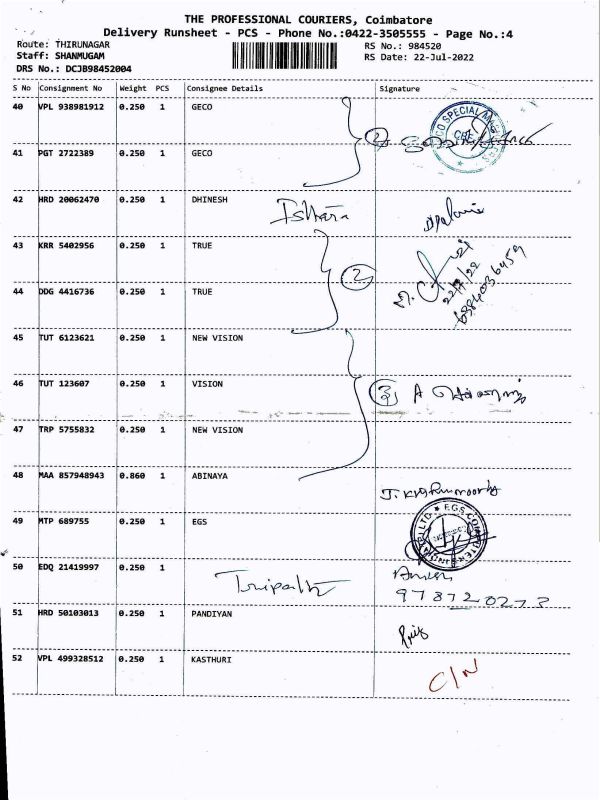 THE PROFESSIONAL COURIERS, Coimbatore
Delivery Runsheet - PCS - Phone No.:0422-3505555 - Page No.:4
Route: THIRUNAGAR RS No.: 984520
Staff: SHANMUGAM RS Date: 22-Jul-2022
DRS No.: DCJB98452004
S No Consignment No Weight PCS Consignee Details Signature
40 VPL 938981912 0.250 1 GECO
2
41 PGT 2722389 0.250 1 GECO
42 HRD 20062470 0.250 1 DHINESH
43 KRR 5402956 0.250 1 TRUE
2
22/7/22
44 DDG 4416736 0.250 1 TRUE
45 TUT 6123621 0.250 1 NEW VISION
46 TUT 123607 0.250 1 VISION
3
47 TRP 5755832 0.250 1 NEW VISION
48 MAA 857948943 0.860 1 ABINAYA
49 MTP 689755 0.250 1 EGS
50 EDQ 21419997 0.250 1
51 HRD 50103013 0.250 1 PANDIYAN
52 VPL 499328512 0.250 1 KASTHURI
C/N